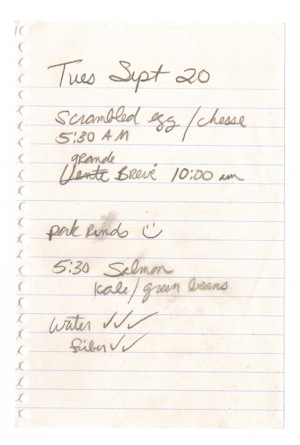 Tues Sept 20
Scrambled egg / chesse
5:30 AM
grande
Vente Brevé 10:00 am
pork rinds ☺
5:30 Salmon
kale / green beans
water ✓✓✓
fiber ✓✓